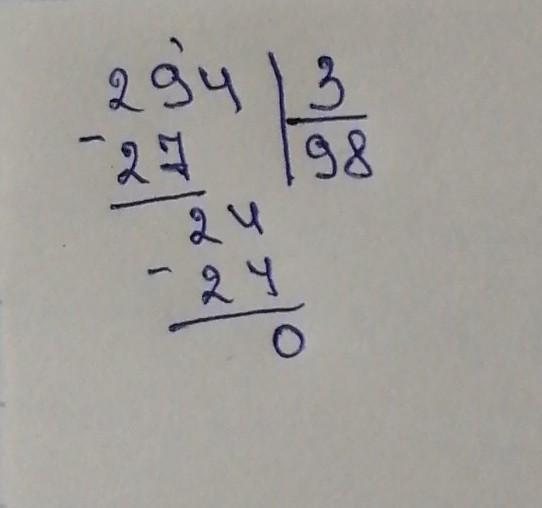 294 | 3
- 27 | 98
24
- 24
0